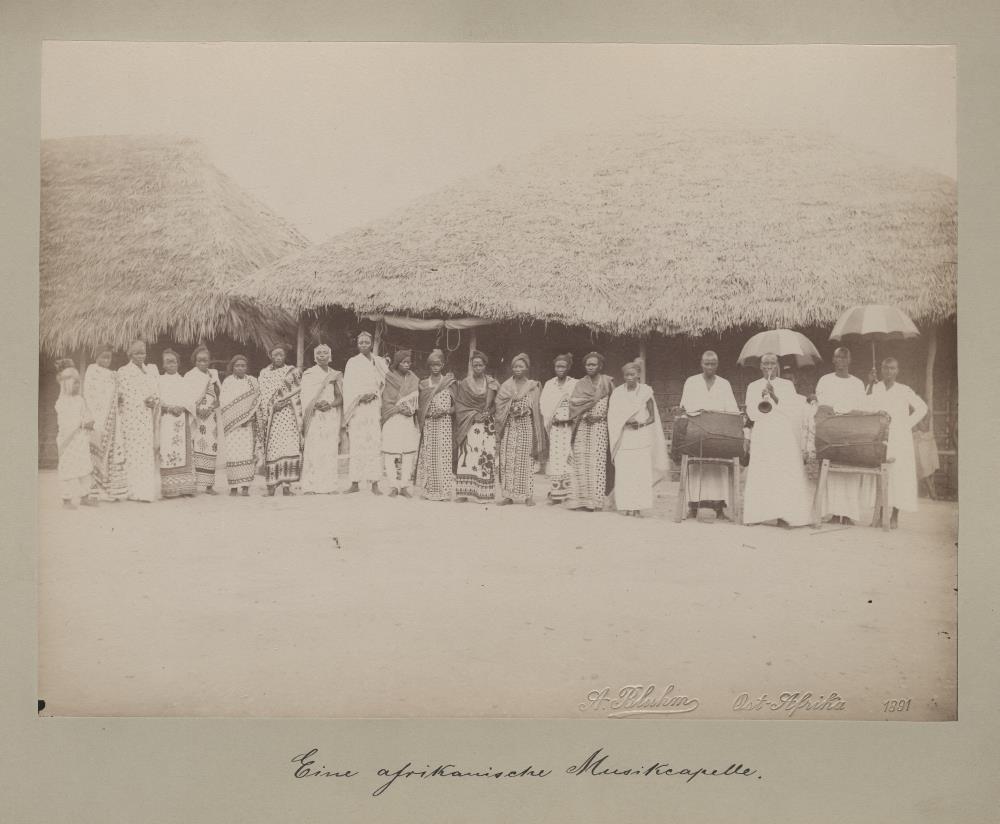 A. Bluhm Ost-Afrika 1891
Eine afrikanische Musikcapelle.